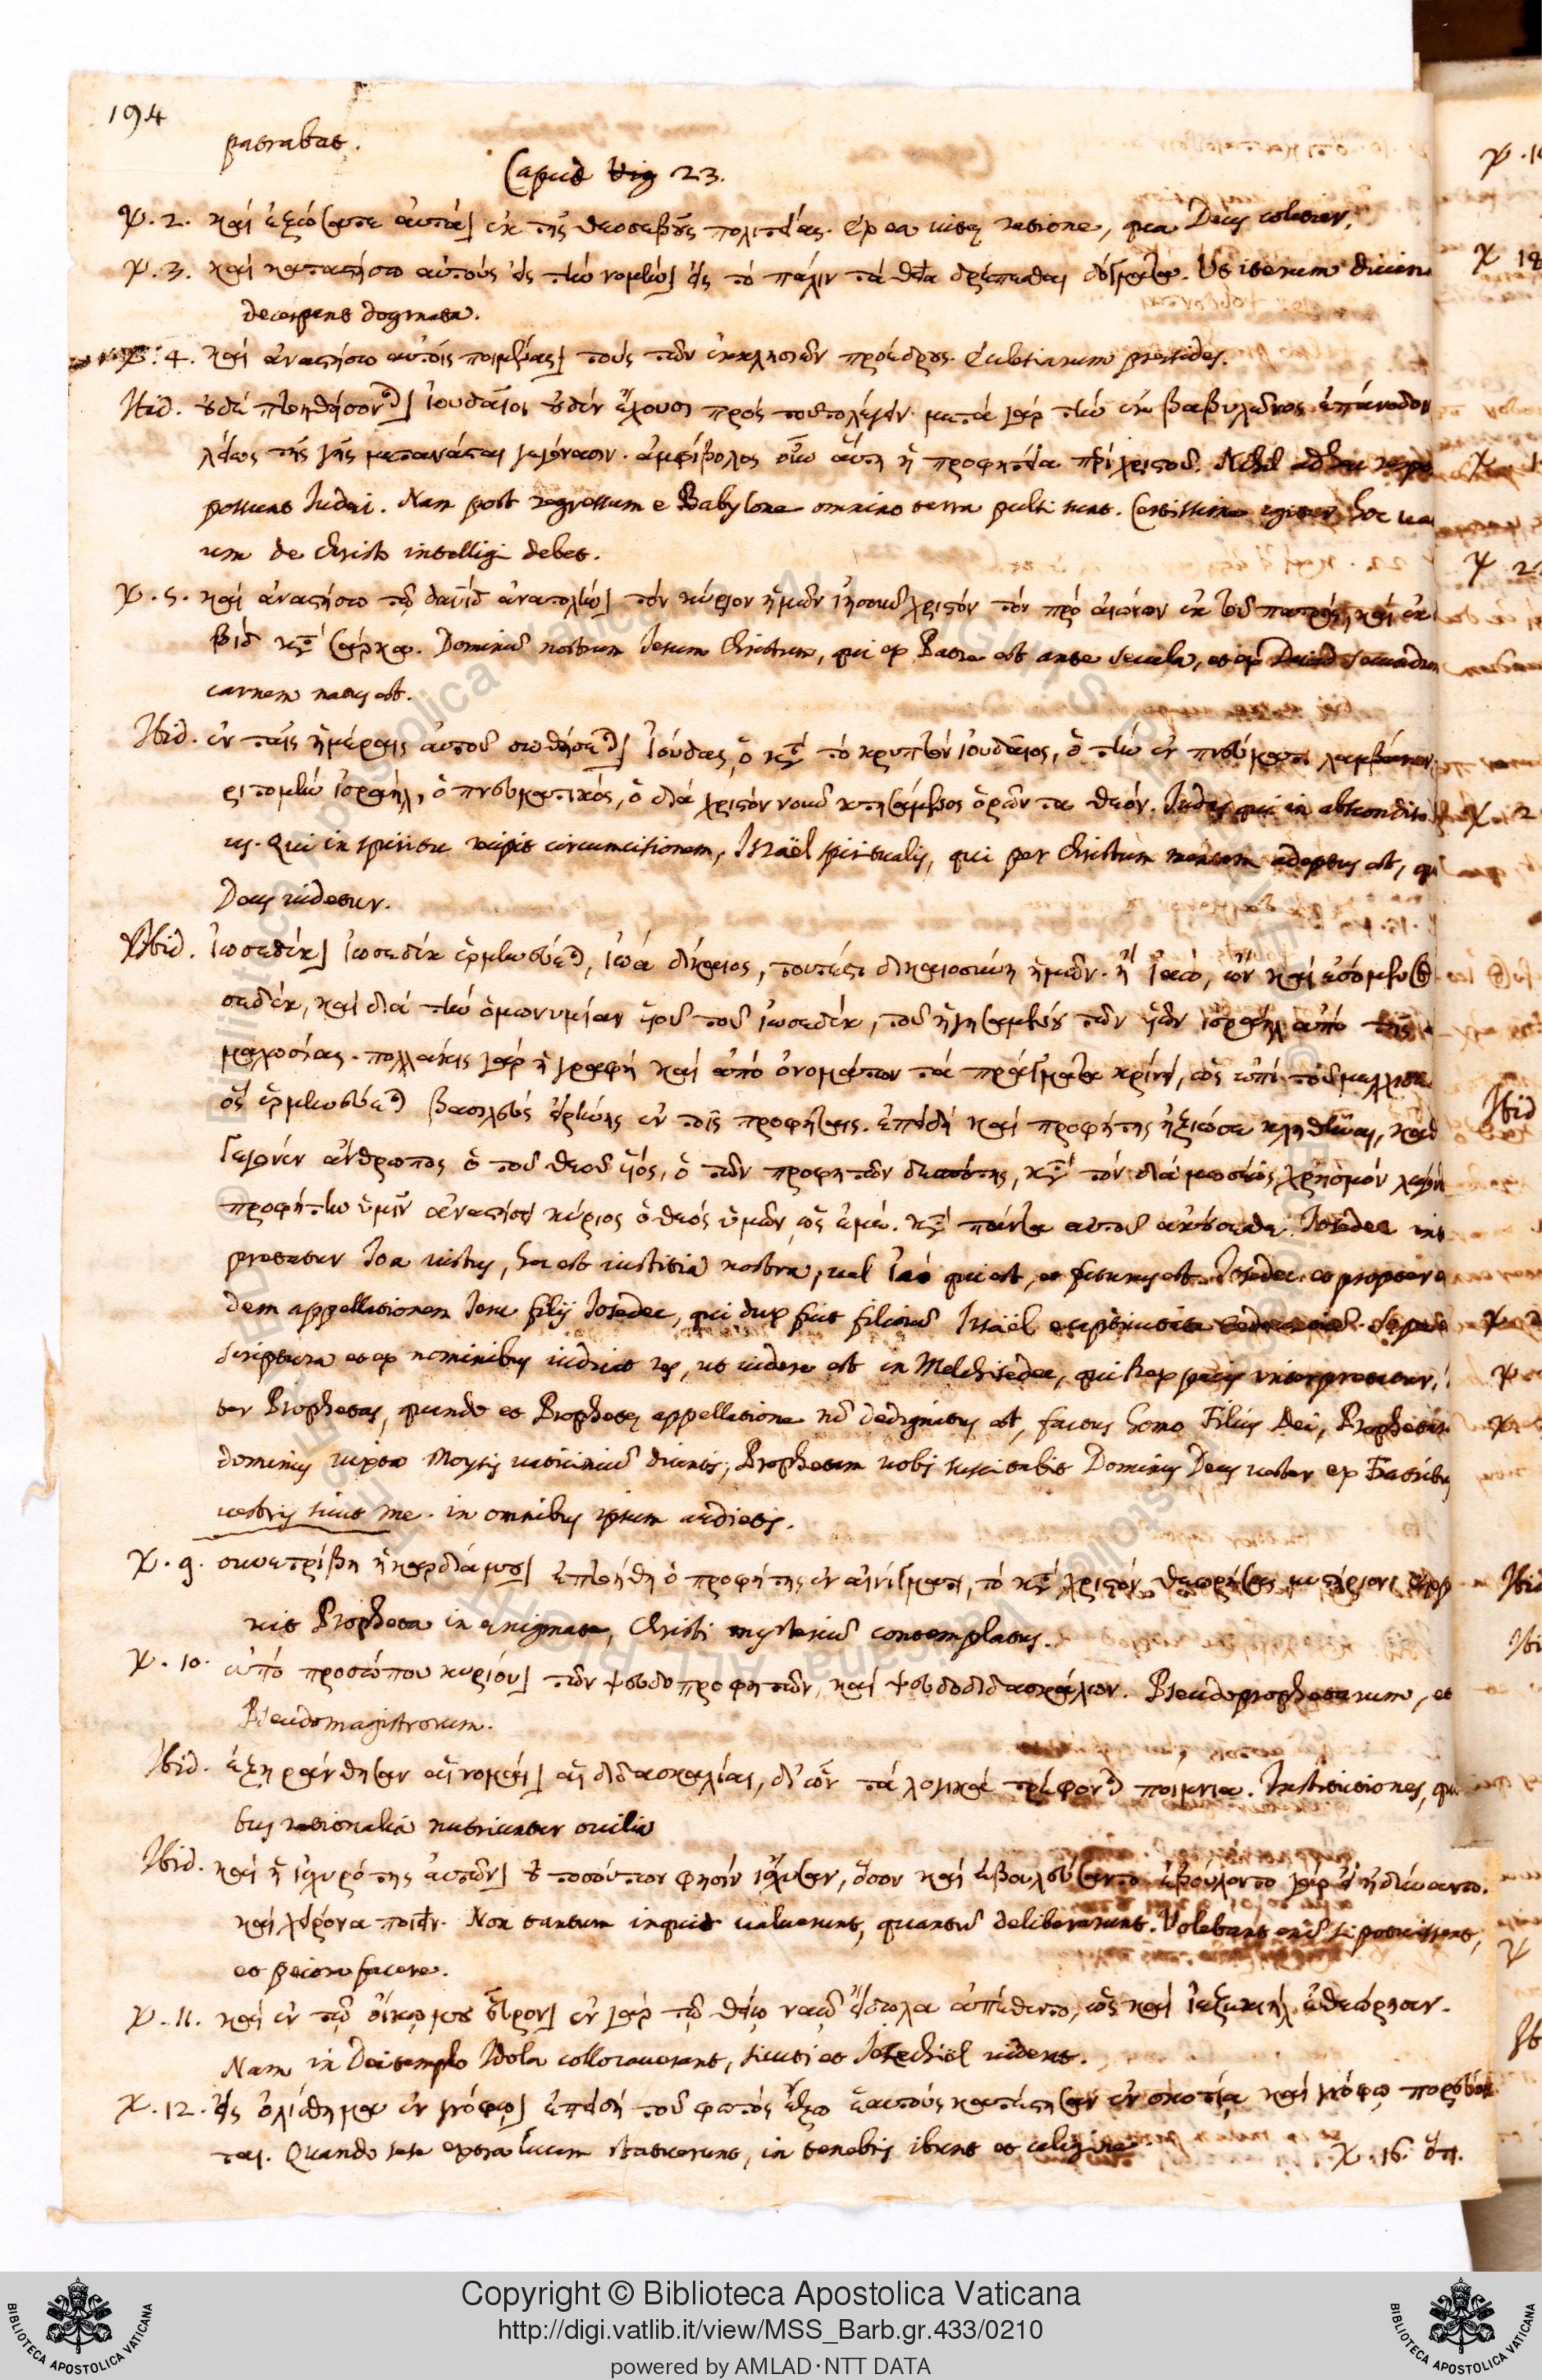 194
patrabat.
Caput 23.
ψ. 2. καὶ ἐξώσατε αὐτά] ἐκ τῆς θεοσεβοῦς πολιτείας. Ex ea vitę ratione, qua Deus colitur.
ψ. 3. καὶ καταστήσω αὐτοὺς εἰς τὴν νομήν] εἰς τὸ πάλιν τὰ θεῖα δρέπεσθαι δόγματα. Ut iterum divina
decerpant dogmata.
ψ. 4. καὶ ἀναστήσω αὐτοῖς ποιμένας] τοὺς τῶν ἐκκλησιῶν προέδρους. Ecclesiarum presides.
Ibid. οὐδὲ πτοηθήσονται] Ἰουδαῖοι οὐδὲν ἔχουσι πρὸς τοῦτο λέγειν. μετὰ γὰρ τὴν ἐκ βαβυλῶνος ἐπάνοδον
τῆς γῆς μετανάσται γεγόνασιν. ἀμφίβολος οὖν αὕτη ἡ προφητεία περὶ χριστοῦ. Nihil ad hec
possunt Iudęi. Nam post regressum e Babylone omnino terra pulsi sunt. Certissime igitur hoc
um de Christo intelligi debet.
ψ. 5. καὶ ἀναστήσω τῷ δαυὶδ ἀνατολήν] τὸν κύριον ἡμῶν ἰησοῦν χριστόν τὸν πρὸ αἰώνων ἐκ τοῦ πατρός, καὶ ἐκ
βὶδ κατὰ σάρκα. Dominum nostrum Iesum Christum, qui ex Patre est ante secula, et ex David secundum
carnem natus est.
Ibid. ἐν ταῖς ἡμέραις αὐτοῦ σωθήσεται] Ἰούδας, ὁ κατὰ τὸ κρυπτὸν ἰουδαῖος, ὁ τὴν ἐν πνεύματι λαμβάνων
ριτομὴν ἰσραήλ, ὁ πνευματικός, ὁ διὰ χριστὸν νοῦν κτησάμενος ὁρῶντα θεόν. Iudas qui in abscondito
us. Qui in spiritu recipit circumcisionem, Israël spiritualis, qui per Christum mentem adeptus est, qu
Deus videtur.
Ibid. Ἰωσεδέκ] Ἰωσεδὲκ ἑρμηνεύεται, ἰωά δίκαιος, τουτέστι δικαιοσύνη ἡμῶν. ἢ Ἰαώ, ὢν καὶ ἐσόμενος
σεδέκ, καὶ διὰ τὴν ὁμωνυμίαν ἰησοῦ τοῦ ἰωσεδέκ, τοῦ ἡγησαμένου τῶν υἱῶν ἰσραήλ ἀπὸ τῆς
μαλωσίας. πολλάκις γὰρ ἡ γραφὴ καὶ ἀπὸ ὀνομάτων τὰ πράγματα κρίνει, ὡς ἐπὶ τοῦ μελχισε
ὃς ἑρμηνεύεται βασιλεὺς εἰρήνης ἐν τοῖς προφήταις. ἐπειδὴ καὶ προφήτης ἠξίωσε κληθῆναι,
γεγονὼν ἄνθρωπος ὁ τοῦ θεοῦ υἱός, ὁ τῶν προφητῶν δεσπότης, κατὰ τὸν διὰ μωσέως χρησμὸν
προφήτην ὑμῖν ἀναστήσει κύριος ὁ θεὸς ὑμῶν, ὡς ἐμέ. κατὰ πάντα αὐτοῦ ἀκούσεσθε. Iosedec int
pretatur Ioa iustus, hoc est iustitia nostra, vel Ἰαὸ qui est, et futurus est Iosedec et propter
dem appellationem Iesu filij Iosedec, qui dux fuit filiorum Israël e captivitate
scriptura et ex nominibus iudicat res, ut videre est in Melchisedec, qui Rex pacis interpretatur,
ter Prophetas, quando et Prophetę appellatione non dedignatus est, factus homo Filius Dei, Prophetarum
dominus iuxta Moysis vaticinium dicentis; Prophetam vobis suscitabit Dominus Deus vester ex Fratribus
vestris sicut me. in omnibus ipsum audietis.
ψ. 9. συνετρίβη ἡ καρδία μου] ἐπτοήθη ὁ προφήτης ἐν αἰνίγματι, τὸ κατὰ χριστὸν θεωρήσας μυστήριον.
uit Propheta in ęnigmate, Christi mysterium contemplatus.
ψ. 10. ἀπὸ προσώπου κυρίου] τῶν ψευδοπροφητῶν, καὶ ψευδοδιδασκάλων. Pseudoprophetarum, et
Pseudomagistrorum.
Ibid. ἐξηράνθησαν αἱ νομαί] αἱ διδασκαλίαι, δι' ὧν τὰ λογικὰ τρέφονται ποίμνια. Institutiones, qui
bus rationalia nutriuntur ovilia
Ibid. καὶ ἡ ἰσχυρότης αὐτῶν] οὐ τοσοῦτον φησὶν ἴσχυσαν, ὅσον καὶ ἐβουλεύσαντο. ἐβούλοντο γὰρ εἰ ἠδύναντο.
καὶ χείρονα ποιεῖν. Non tantum inquit valuerunt, quantum deliberarunt. Volebant enim si potuissent,
et peiora facere.
ψ. 11. καὶ ἐν τῷ οἴκῳ μου εὗρον] ἐν γὰρ τῷ θείῳ ναῷ εἴδωλα ἀπέθεντο, ὡς καὶ ἰεζεκιὴλ ἐθεώρησεν.
Nam in Dei templo Idola collocaverant, sicuti et Iezechiël videns.
ψ. 12. εἰς ὀλίσθημα ἐν γνόφῳ] ἐπειδὴ τοῦ φωτὸς ἔξω ἑαυτοὺς κατέστησαν ἐν σκοτίᾳ καὶ γνόφῳ πορεύον
ται. Quando sese extra lucem statuerunt, in tenebris ibunt et caligine
ψ. 16. ὅτι.
Copyright © Biblioteca Apostolica Vaticana
http://digi.vatlib.it/view/MSS_Barb.gr.433/0210
powered by AMLAD·NTT DATA
BIBLIOTECA APOSTOLICA VATICANA
BIBLIOTECA APOSTOLICA VATICANA